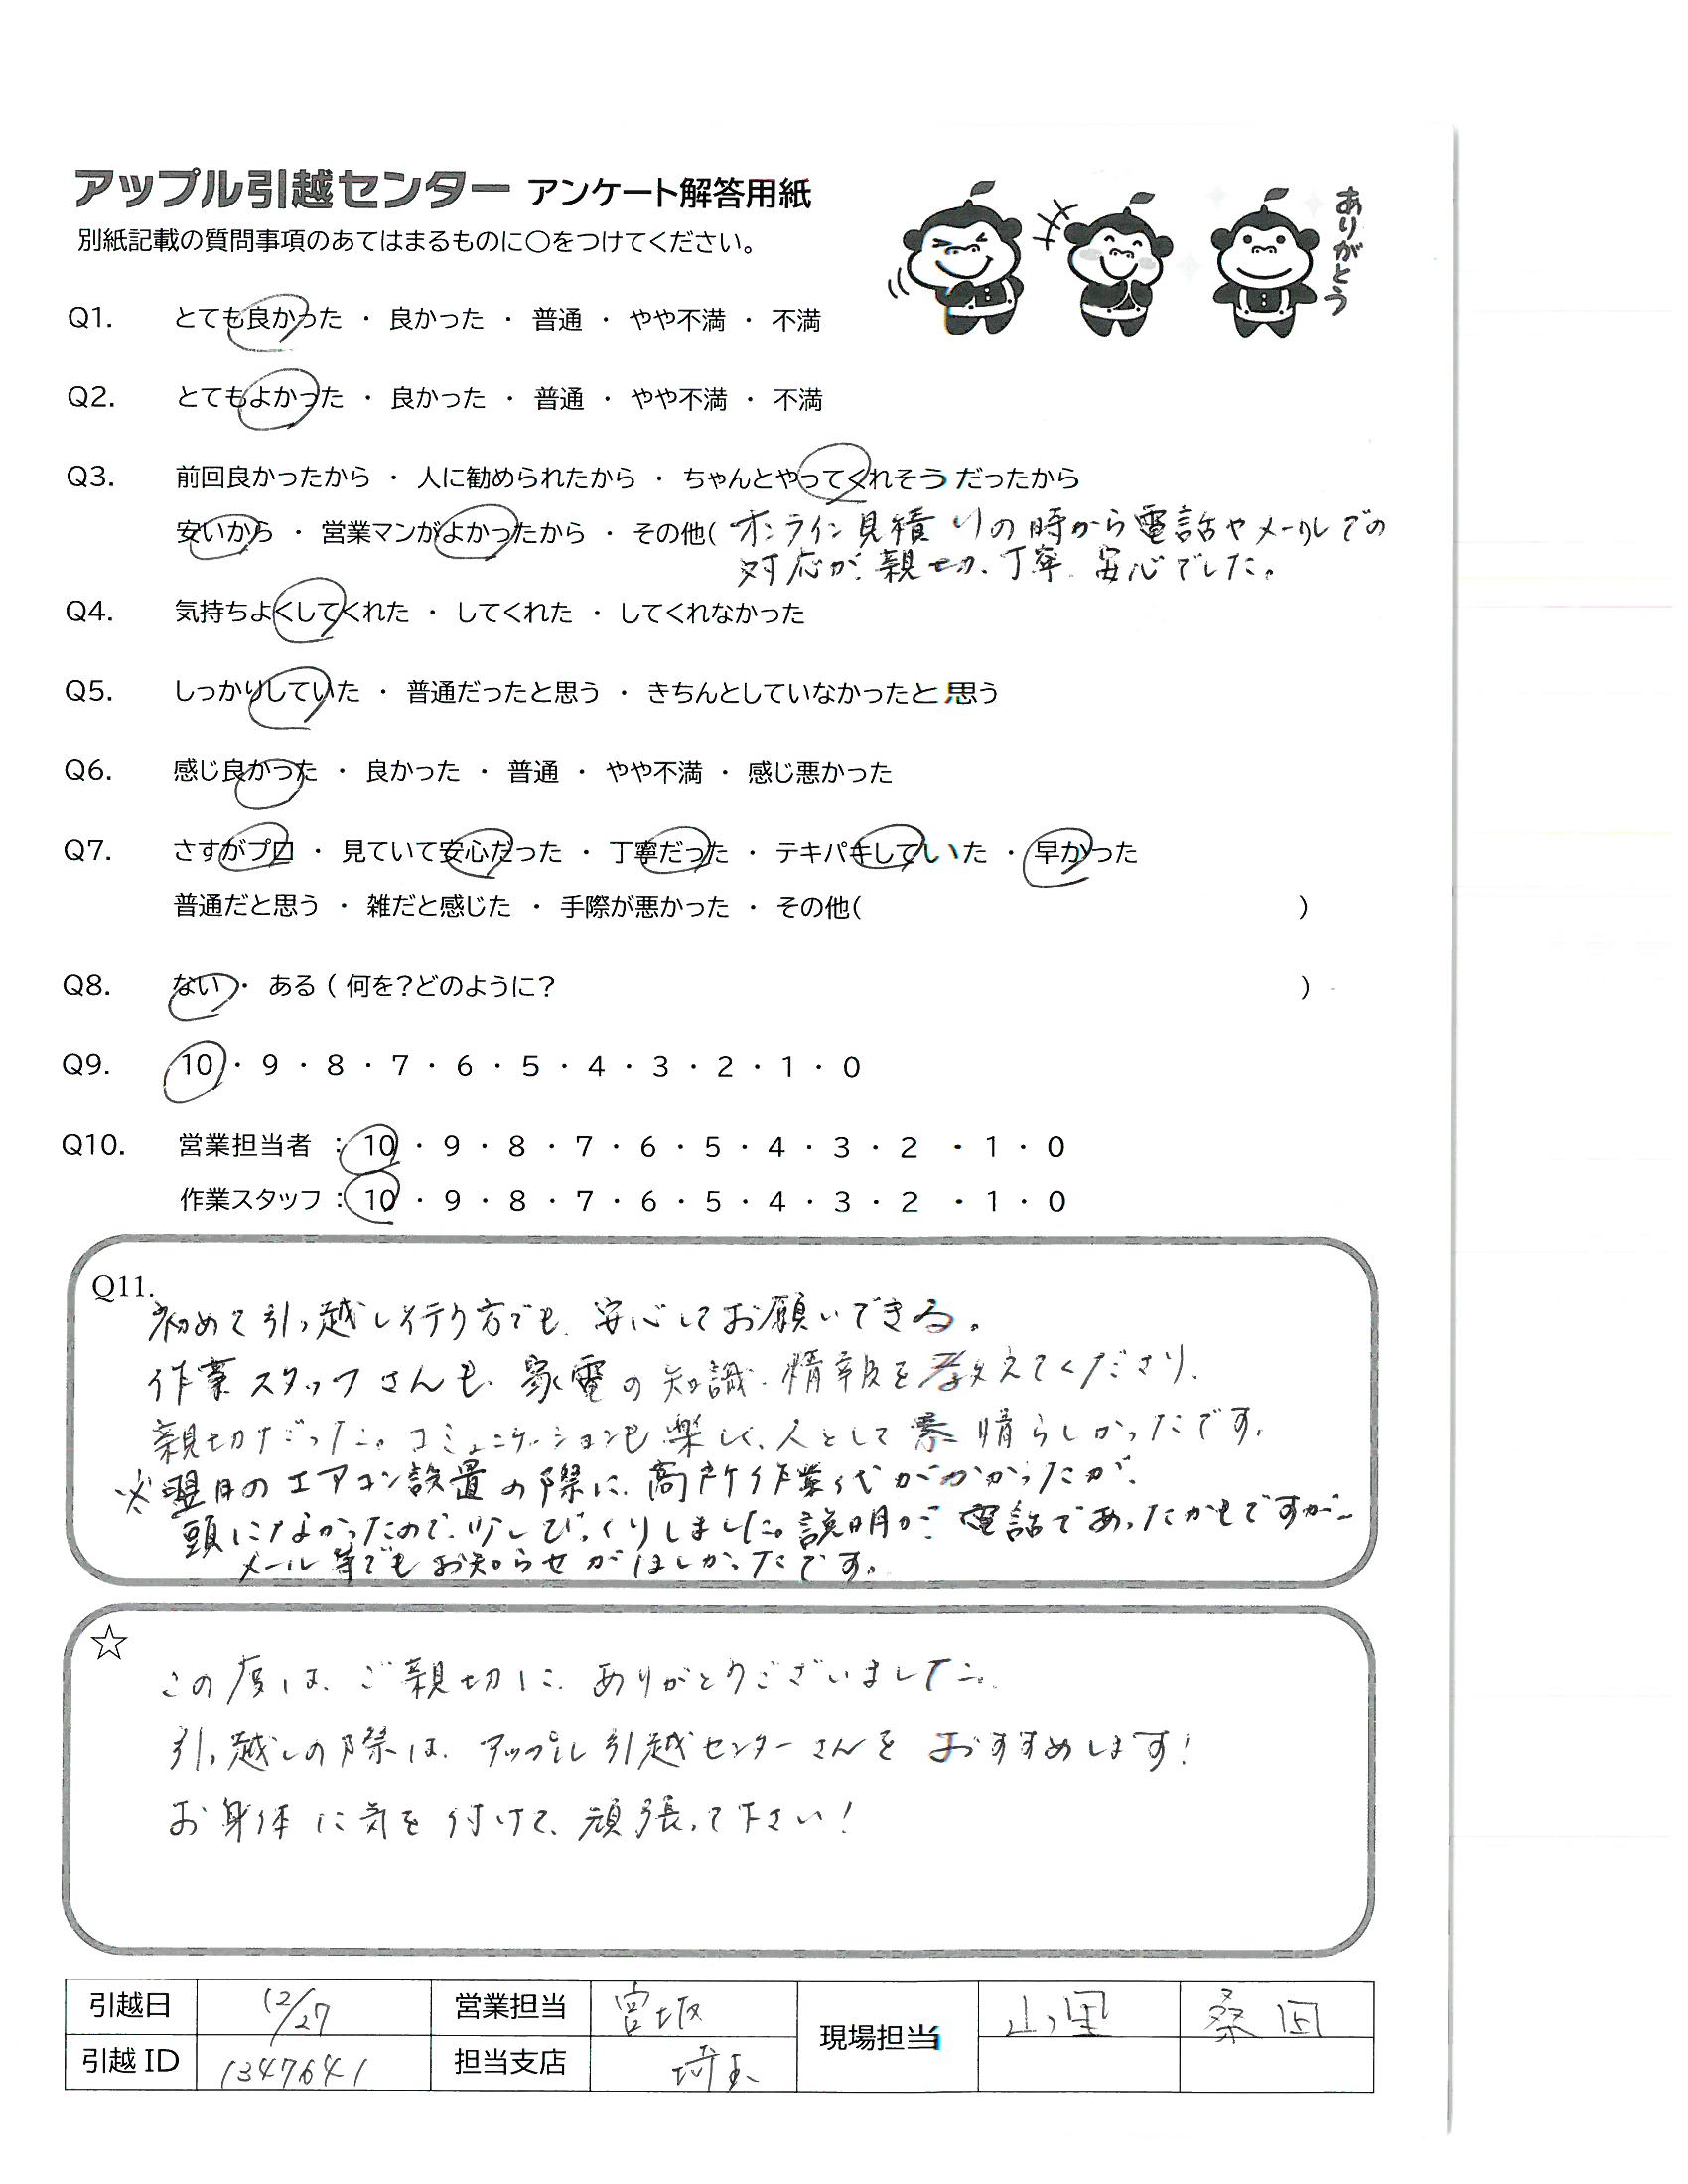 アップル引越センター アンケート解答用紙
別紙記載の質問事項のあてはまるものに○をつけてください。
ありがとう
Q1. とても良かった ・ 良かった ・ 普通 ・ やや不満 ・ 不満
Q2. とてもよかった ・ 良かった ・ 普通 ・ やや不満 ・ 不満
Q3. 前回良かったから ・ 人に勧められたから ・ ちゃんとやってくれそうだったから
安いから ・ 営業マンがよかったから ・ その他( オンライン見積りの時から電話やメールでの
対応が、親切、丁寧、安心でした。
Q4. 気持ちよくしてくれた ・ してくれた ・ してくれなかった
Q5. しっかりしていた ・ 普通だったと思う ・ きちんとしていなかったと思う
Q6. 感じ良かった ・ 良かった ・ 普通 ・ やや不満 ・ 感じ悪かった
Q7. さすがプロ ・ 見ていて安心だった ・ 丁寧だった ・ テキパキしていた ・ 早かった
普通だと思う ・ 雑だと感じた ・ 手際が悪かった ・ その他( )
Q8. ない ・ ある ( 何を?どのように? )
Q9. 10 ・ 9 ・ 8 ・ 7 ・ 6 ・ 5 ・ 4 ・ 3 ・ 2 ・ 1 ・ 0
Q10. 営業担当者 : 10 ・ 9 ・ 8 ・ 7 ・ 6 ・ 5 ・ 4 ・ 3 ・ 2 ・ 1 ・ 0
作業スタッフ : 10 ・ 9 ・ 8 ・ 7 ・ 6 ・ 5 ・ 4 ・ 3 ・ 2 ・ 1 ・ 0
Q11.
初めて引っ越しを行う方でも、安心してお願いできる。
作業スタッフさんも、家電の知識、情報を教えてくださり、
親切だった。コミュニケーションも楽しく、人として素晴らしかったです。
※翌日のエアコン設置の際に、高所作業代がかかったが、
頭になかったので、少しびっくりしました。説明が電話であったかもですが、
メール等でもお知らせがほしかったです。
☆
この度は、ご親切に、ありがとうございました。
引っ越しの際は、アップル引越センターさんをおすすめします!
お身体に気を付けて、頑張って下さい!
引越日 12/27 営業担当 宮坂 現場担当 山里 桑田
引越ID 1347641 担当支店 埼玉